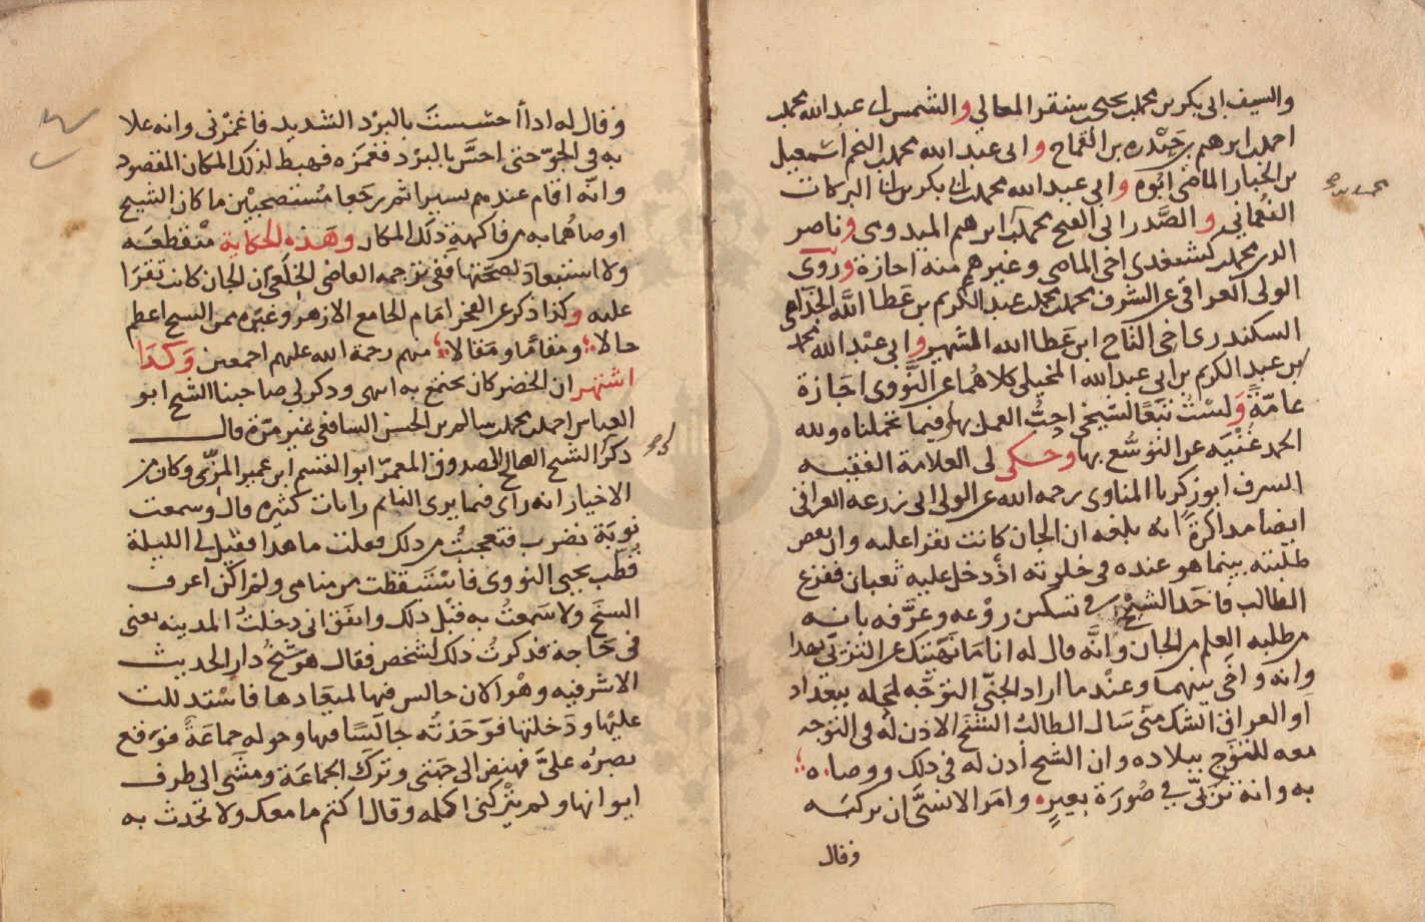 والسيف ابي بكر بن محمد بن يحيى سنقر المعالي والشمس ابي عبد الله محمد بن
احمد بن ابرهيم بن حيدره بن القماح وابي عبد الله محمد بن النجم اسمعيل
بن الخباز الماضي ابوه وابي عبد الله محمد بن ابي بكر بن ابي البركات
النعماني والصدر ابي الفتح محمد بن ابرهيم الميدومي وناصر
الدين محمد بن كشتغدي اخي الماضي وغيرهم منه اجازة وروى
الولي العراقي عن الشرف محمد بن محمد بن عبد الكريم بن عطا الله الجذامي
السكندري اخي التاج ابن عطا الله الشهير وابي عبد الله محمد
بن عبد الكريم بن ابي عبد الله كلاهما عن النووي اجازة
عامة ولست تبعا لشيخي احب العمل بها فيما تحملناه ولله
الحمد غنية عن التوسع بها وحكى لي العلامة الفقيه
الشرف ابو زكريا المناوي رحمه الله عن الولي ابي زرعة العراقي
ايضا مذاكرة انه بلغه ان الجان كانت تقرا عليه وان بعض
طلبته بينما هو عنده في خلوته اذ دخل عليه ثعبان ففزع
الطالب فاخذ الشيخ في تسكين روعه وعرفه بانه
من طلبة العلم من الجان وانه قال له انا ما نهيتك عن التزيي بهذا
وانه واخى بينهما وعندما اراد الجني التوجه لمحله ببغداد
او العراق الشك مني سال الطالب الشيخ الاذن له في التوجه
معه للتفرج ببلاده وان الشيخ أذن له في ذلك ووصاه
به وانه تزيى في صورة بعير وامر الانسي ان يركبه
وقال
محمد
وقال له اذا أحسست بالبرد الشديد فاغمزني وانه علا
به في الجو حتى احس بالبرد فغمزه فهبط لذلك المكان المقصود
وانه اقام عندهم يسيرا ثم رجعا مستصحبين ما كان الشيخ
اوصاهما به من فاكهة ذلك المكان وهذه الحكاية منقطعة
ولا استبعاد لصحتها ففي ترجمة القاضي الخلعي ان الجان كانت تقرا
عليه وكذا ذكر عن الفخر امام الجامع الازهر وغيره ممن الشيخ اعظم
حالا ومقاما ومقالا منهم رحمة الله عليهم اجمعين وكذا
اشتهر ان الخضر كان يجتمع به انتهى وذكر لي صاحبنا الشيخ ابو
العباس احمد بن محمد بن سالم بن الحسن الشافعي غير مرة قال
ذكر الشيخ الصالح الصدوق المعمر ابو القسم ابن عمير المزي وكان من
الاخيار انه راى فيما يرى النائم رايات كثيره قال وسمعت
نوبة تضرب فتعجبت من ذلك فقلت ما هذا فقيل لي الليلة
قطب يحيى النووي فاستيقظت من منامي ولم اكن اعرف
الشيخ ولا سمعت به قبل ذلك واتفق اني دخلت المدينة يعني
في حاجة فذكرت ذلك لشخص فقال هو شيخ دار الحديث
الاشرفيه وهو الان جالس فيها لميعادها فاستدللت
عليها ودخلتها فوجدته جالسا فيها وحوله جماعة فوقع
بصره علي فنهض الى جهتي وترك الجماعة ومشى الى طرف
ايوانها ولم يتركني اكلمه وقال اكتم ما معك ولا تحدث به